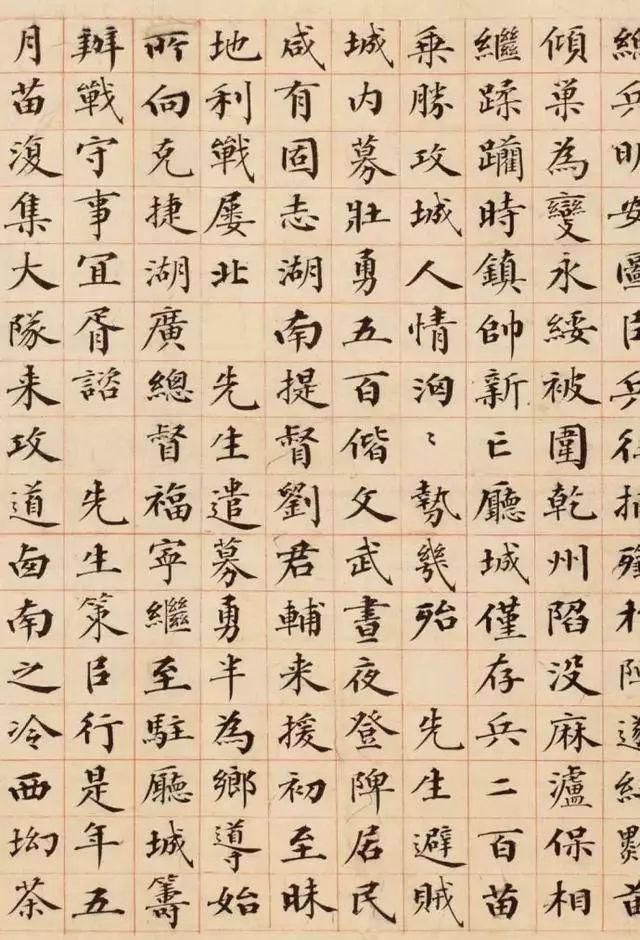 總兵明安圖兵往陣遂苗
傾巢為變永綏被圍乾州陷没麻瀘保相
繼蹂躪時鎮帥新亡廳城僅存兵二百苗
乘勝攻城人情洶〻勢幾殆 先生避賊
城内募壯勇五百偕文武晝夜登陴居民
咸有固志湖南提督劉君輔来援初至昧
地利戰屡北 先生遣募勇半為鄉導始
所向克捷湖廣總督福寧繼至駐廳城籌
辦戰守事宜胥諮 先生策臣行是年五
月苗復集大隊来攻道南之冷西坳茶